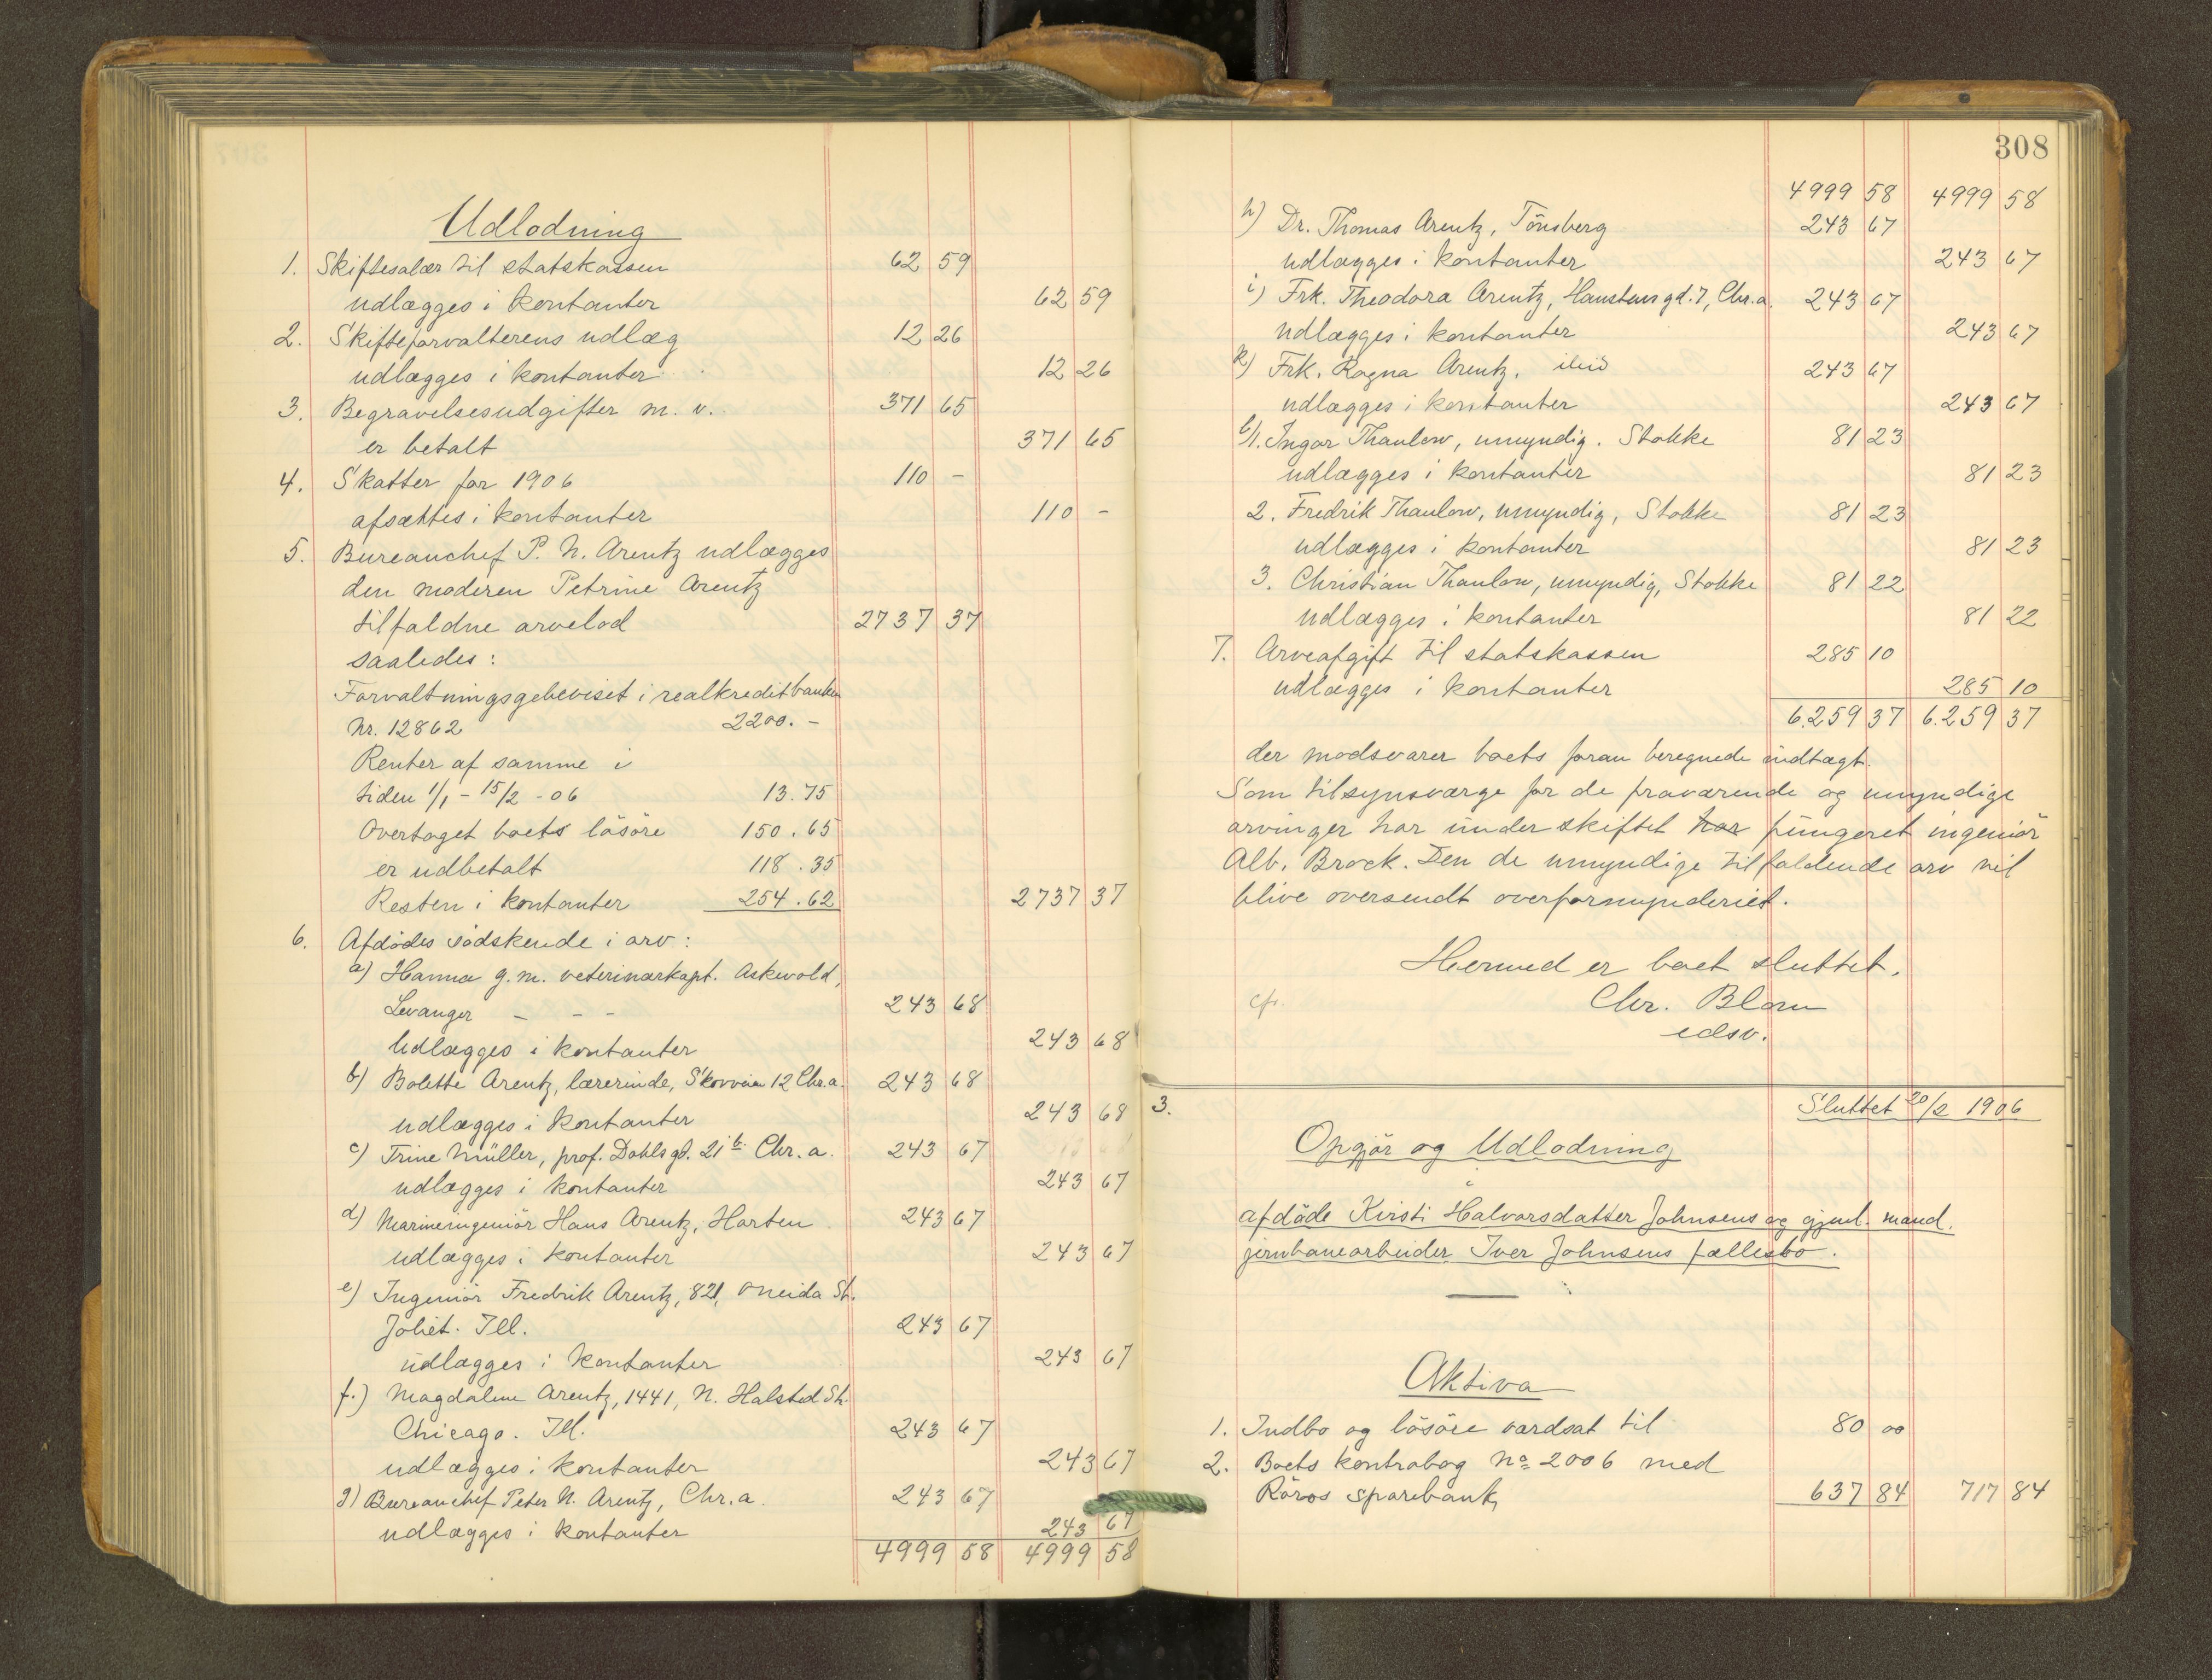 Udlodning
1. Skiftesalær til statskassen 62 59
udlægges i kontanter 62 59
2. Skifteforvalterens udlæg 12 26
udlægges i kontanter 12 26
3. Begravelsesudgifter m. v. 371 65
er betalt 371 65
4. Skatter for 1906 110 -
afsættes i kontanter 110 -
5. Bureauchef P. N. Arentz udlægges
den moderen Petrine Arentz
tilfaldne arvelod 2737 37
saaledes:
Forvaltningsgjebeviset i realkreditbanken
Nr. 12862 2200. -
Renter af samme i
tiden 1/1 - 15/2 - 06 13.75
Overtaget boets lösöre 150.65
er udbetalt 118.35
Resten i kontanter 254.62 2737 37
6. Afdödes södskende i arv:
a) Hanna g. m. veterinærkapt. Askevold,
Levanger - - - 243 68
Udlægges i kontanter 243 68
b) Bolette Arentz, lærerinde, Skovveien 12 Chr.a. 243 68
udlægges i kontanter 243 68
c) Trine Müller, prof. Dahls gd. 21 b. Chr.a. 243 67
udlægges i kontanter 243 67
d) Marineingeniör Hans Arentz, Horten 243 67
udlægges i kontanter 243 67
e) Ingeniör Fredrik Arentz, 821, Oneida St.
Joliet. Ill. 243 67
udlægges i kontanter 243 67
f.) Magdalene Arentz, 1441, N. Halsted St.
Chicago. Ill. 243 67
udlægges i kontanter 243 67
g) Bureauchef Peter N. Arentz, Chr.a. 243 67
udlægges i kontanter 243 67
4999 58 4999 58
308
4999 58 4999 58
h) Dr. Thomas Arentz, Tönsberg 243 67
udlægges i kontanter 243 67
i) Frk. Theodora Arentz, Hansteens gd. 7, Chr.a. 243 67
udlægges i kontanter 243 67
k) Frk. Ragna Arentz, ibid 243 67
udlægges i kontanter 243 67
l) 1. Ingar Thaulow, umyndig. Stokke 81 23
udlægges i kontanter 81 23
2. Fredrik Thaulow, umyndig, Stokke 81 23
udlægges i kontanter 81 23
3. Christian Thaulow, umyndig, Stokke 81 22
udlægges i kontanter 81 22
7. Arveafgift til statskassen 285 10
udlægges i kontanter 285 10
6.259 37 6.259 37
der modsvarer boets foran beregnede indtægt.
Som tilsynsværge for de fraværende og umyndige
arvinger har under skiftet har fungeret ingeniör
Alb. Brock. Den de umyndige tilfaldende arv vil
blive oversendt overformynderiet.
Hermed er boet sluttet.
cfr. Chr. Blom
edsv.
3. Sluttet 20/2 1906
Opgjör og Udlodning
i
afdöde Kirsti Halvorsdatter Johnsens og gjenl. mand.
jernbanearbeider Iver Johnsens fællesbo.
Aktiva
1. Indbo og lösöre værdsat til 80 00
2. Boets kontrabog No 2006 med
Röros sparebank, 637 84 717 84